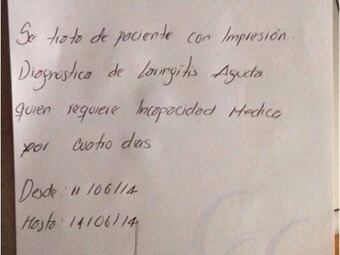 Se trata de paciente con Impresión.
Diagnostica de Laringitis Aguda
quien requiere Incapacidad Medica
por cuatro dias
Desde: 11/06/14
Hasta: 14/06/14